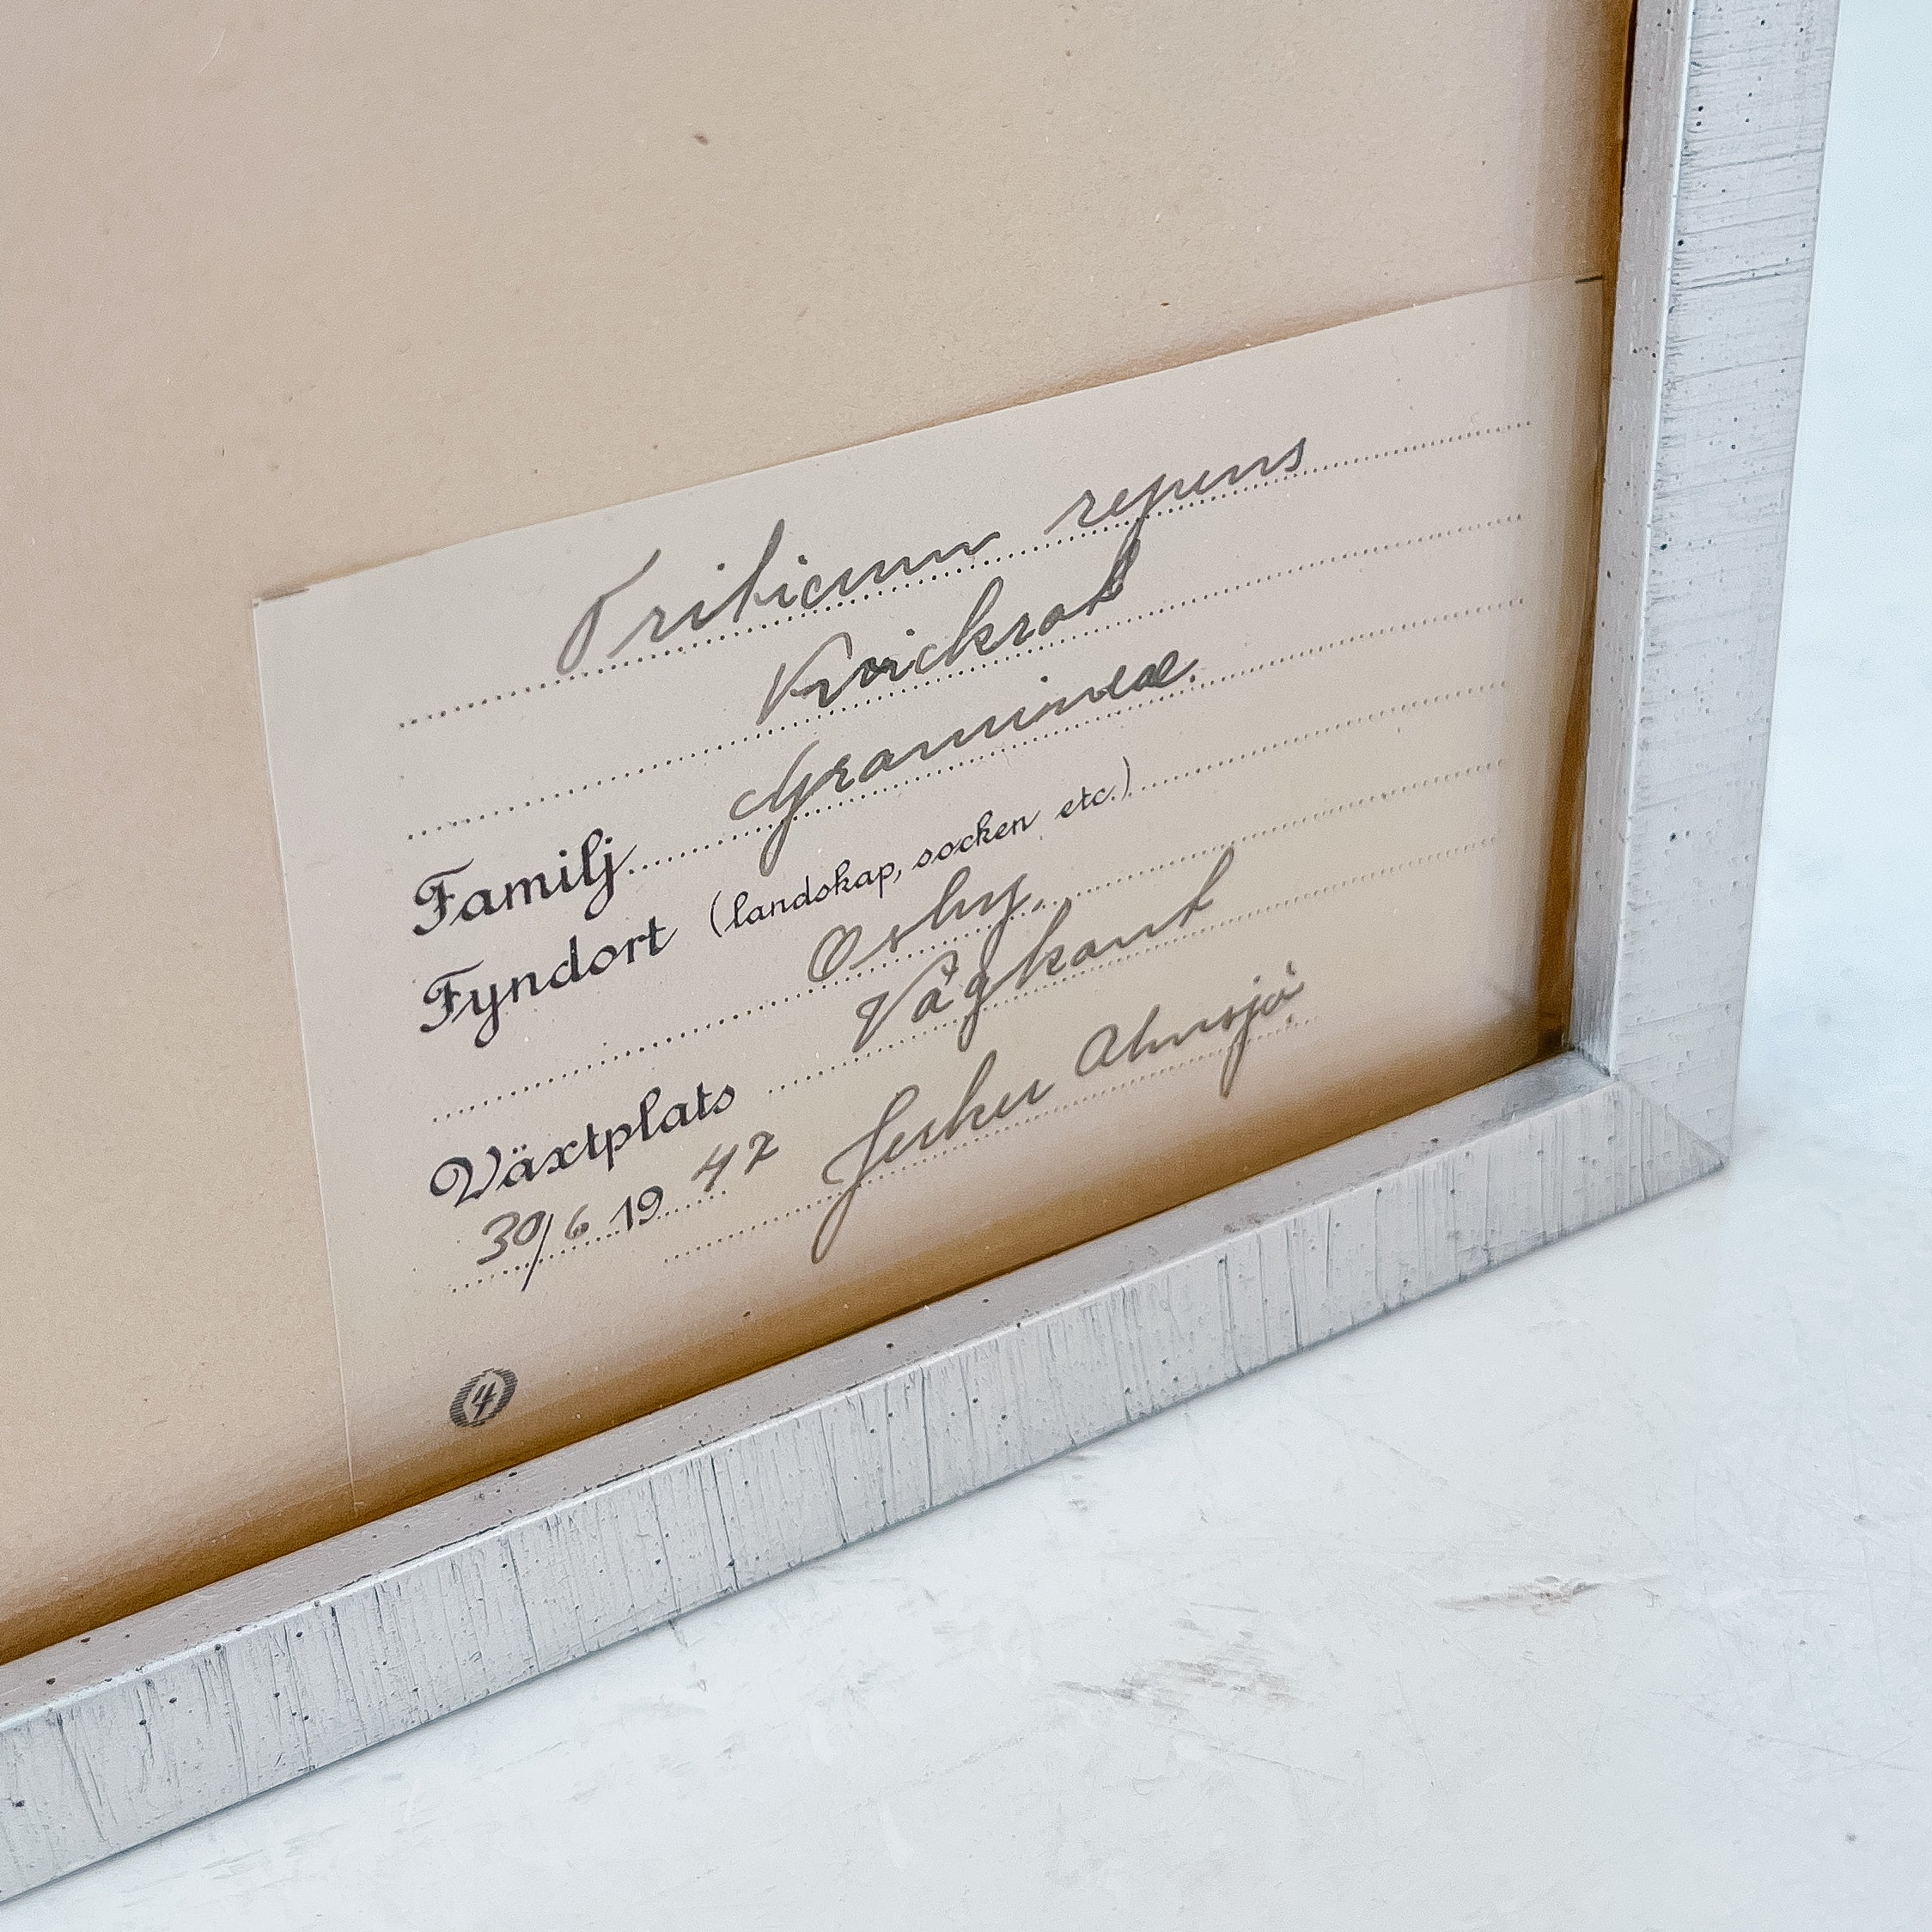 Triticum repens
Kvickrot
Familj Gramineæ.
Fyndort (landskap, socken etc.)
Osby.
Växtplats Vägkant
30/6 1942 Jerker Ahnsjö
4